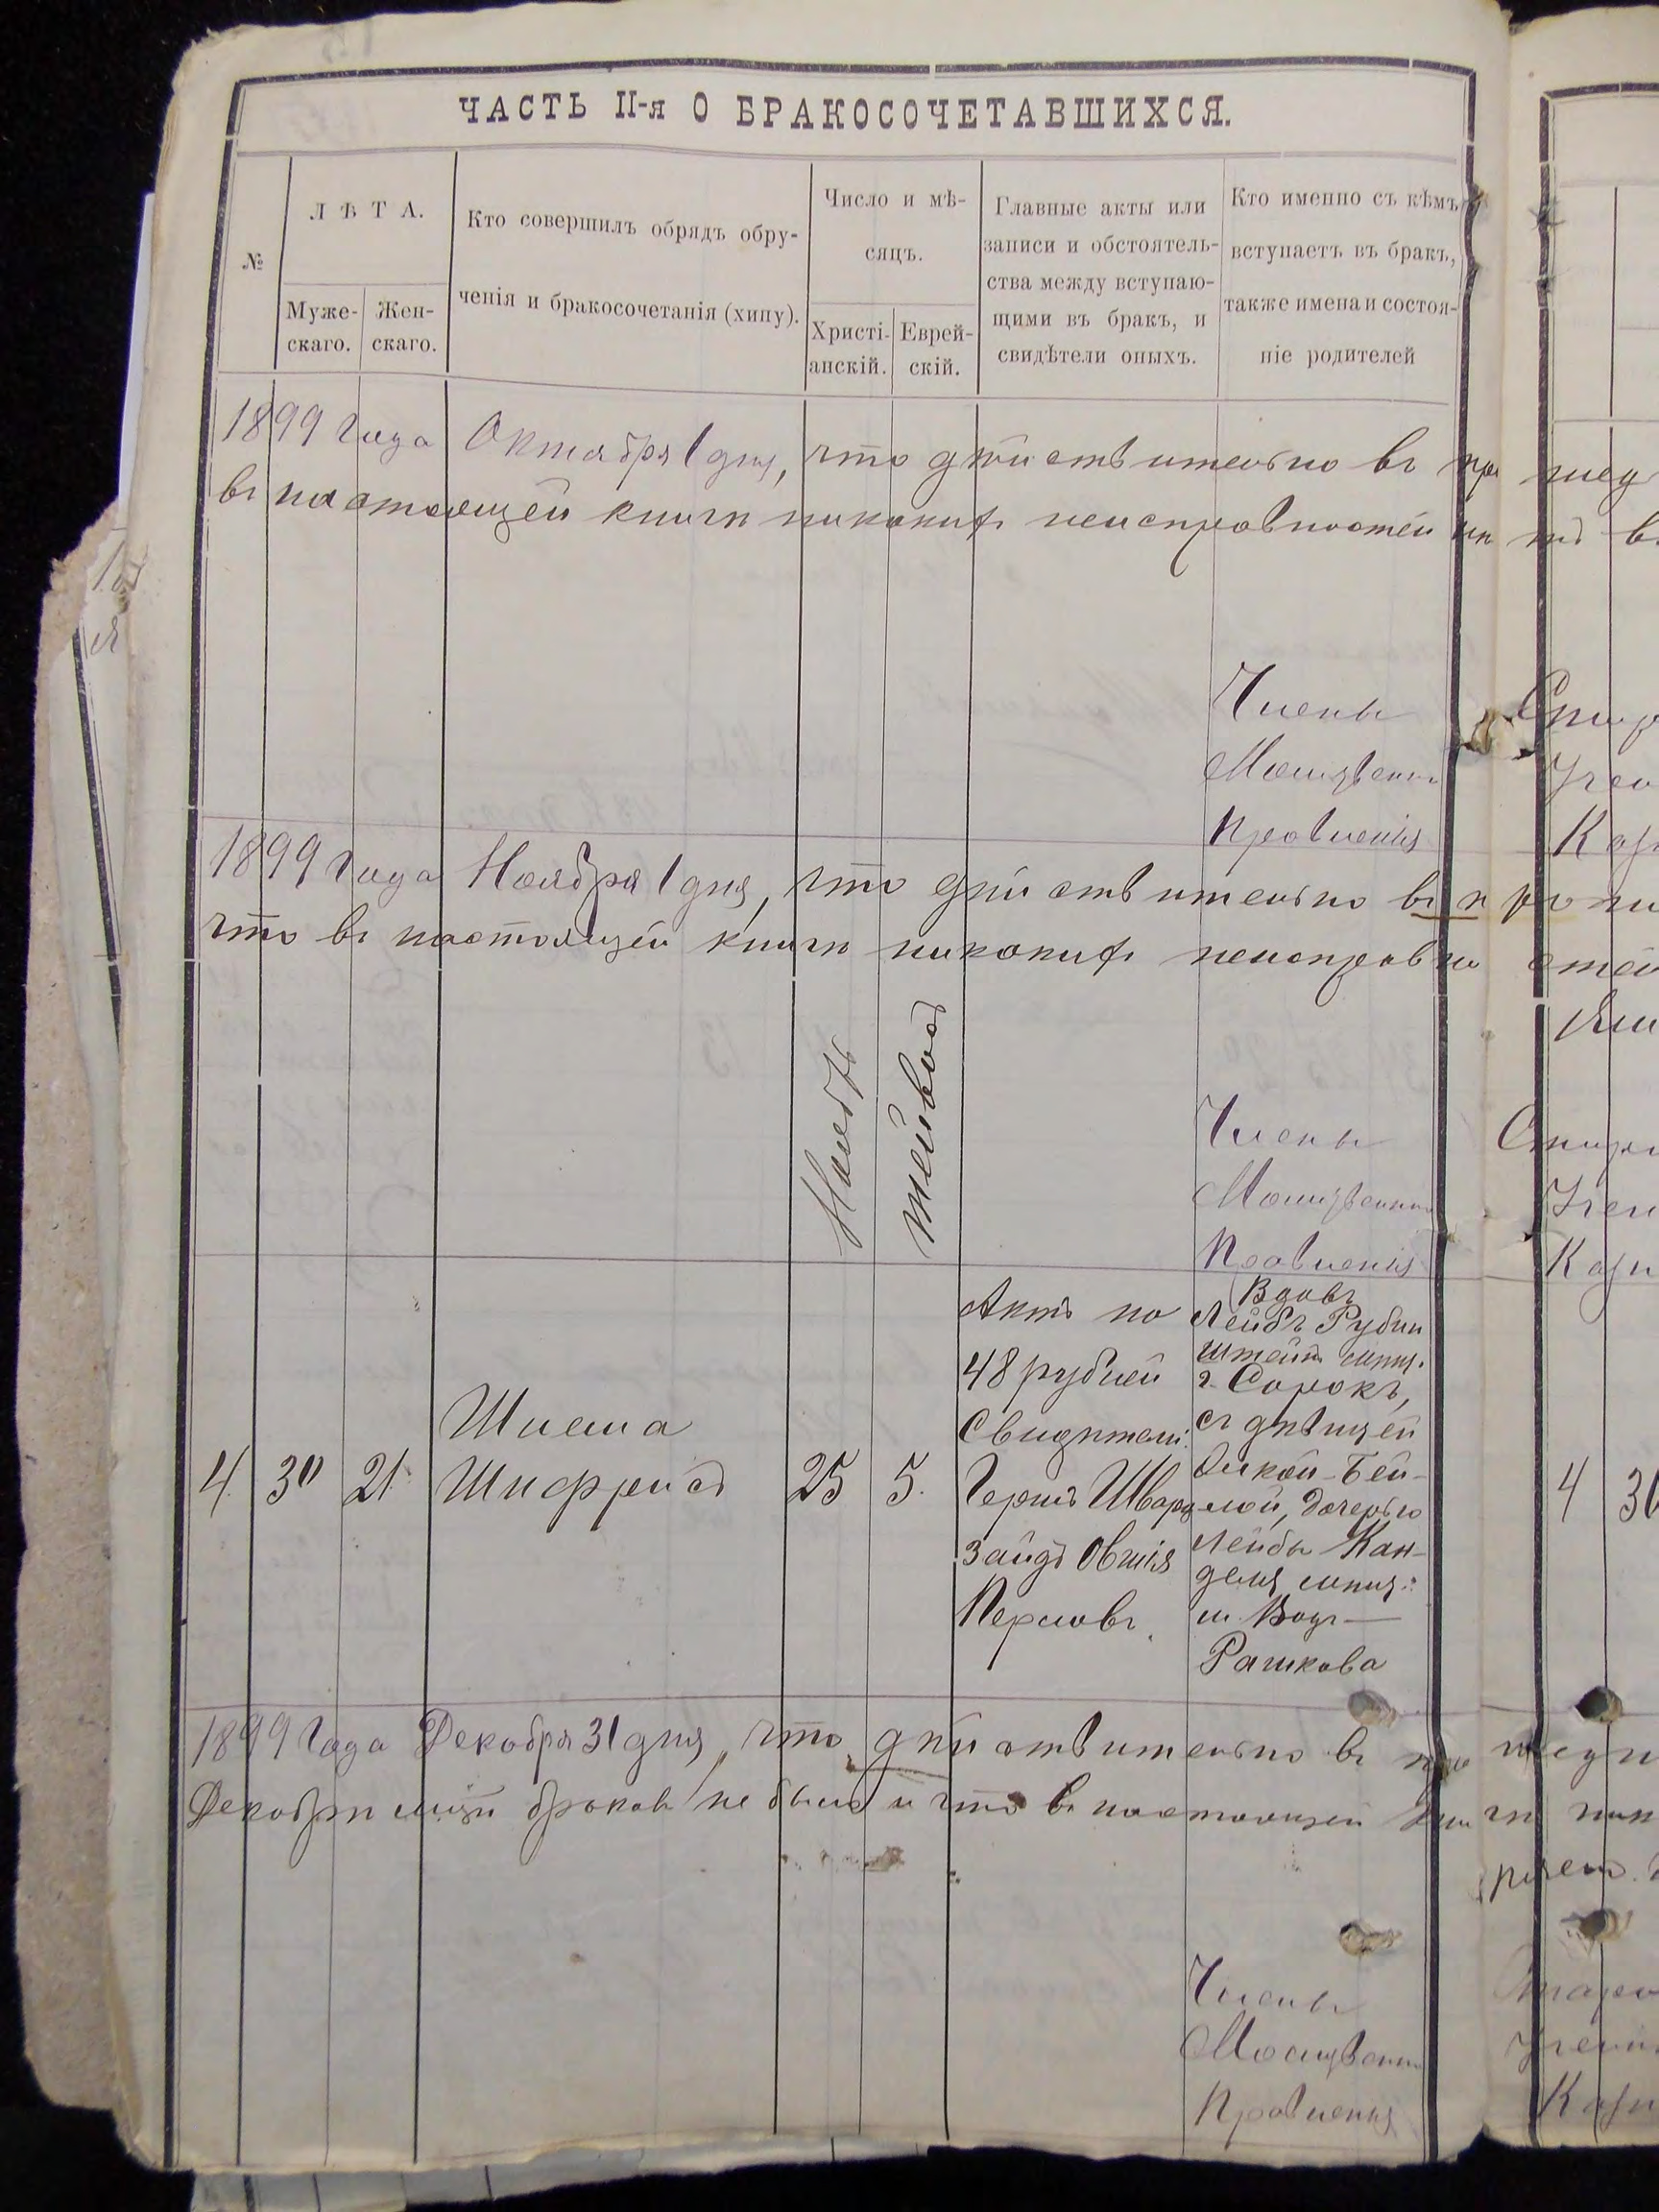 ЧАСТЬ II-я О БРАКОСОЧЕТАВШИХСЯ.
№
ЛѢТА.
Муже-
скаго.
Жен-
скаго.
Кто совершилъ обрядъ обру-
ченія и бракосочетанія (хипу).
Число и мѣ-
сяцъ.
Христі-
анскій.
Еврей-
скій.
Главные акты или
записи и обстоятель-
ства между вступаю-
щими въ бракъ, и
свидѣтели оныхъ.
Кто именно съ кѣмъ
вступаетъ въ бракъ,
также имена и состоя-
ніе родителей
1899 Года Октября 1 дня, что дѣйствительно въ
въ настоящей книгѣ никакихъ неисправностей
Члены
Правленія
1899 Года Ноября 1 дня, что дѣйствительно въ
что въ настоящей книгѣ никакихъ неисправно
Члены
Правленія
Ноябрь
4
30
21
Шлема
25
5.
Актъ по
48 рублей
Свидѣтели:
Гершъ Шварц
Зайдъ Овшія
Перловъ.
Вдовъ
Лейбъ Рубин
штейнъ мѣщ.
г. Сорокъ,
съ дѣвицей
Бей-
лой, дочерью
Лейбы Кан-
деля мѣщ.
м. Вадъ-
Рашкова
4
1899 Года Декабря 31 дня, что дѣйствительно въ
Декабрѣ мцѣ браковъ не было и что въ настоящей
Члены
Правленія